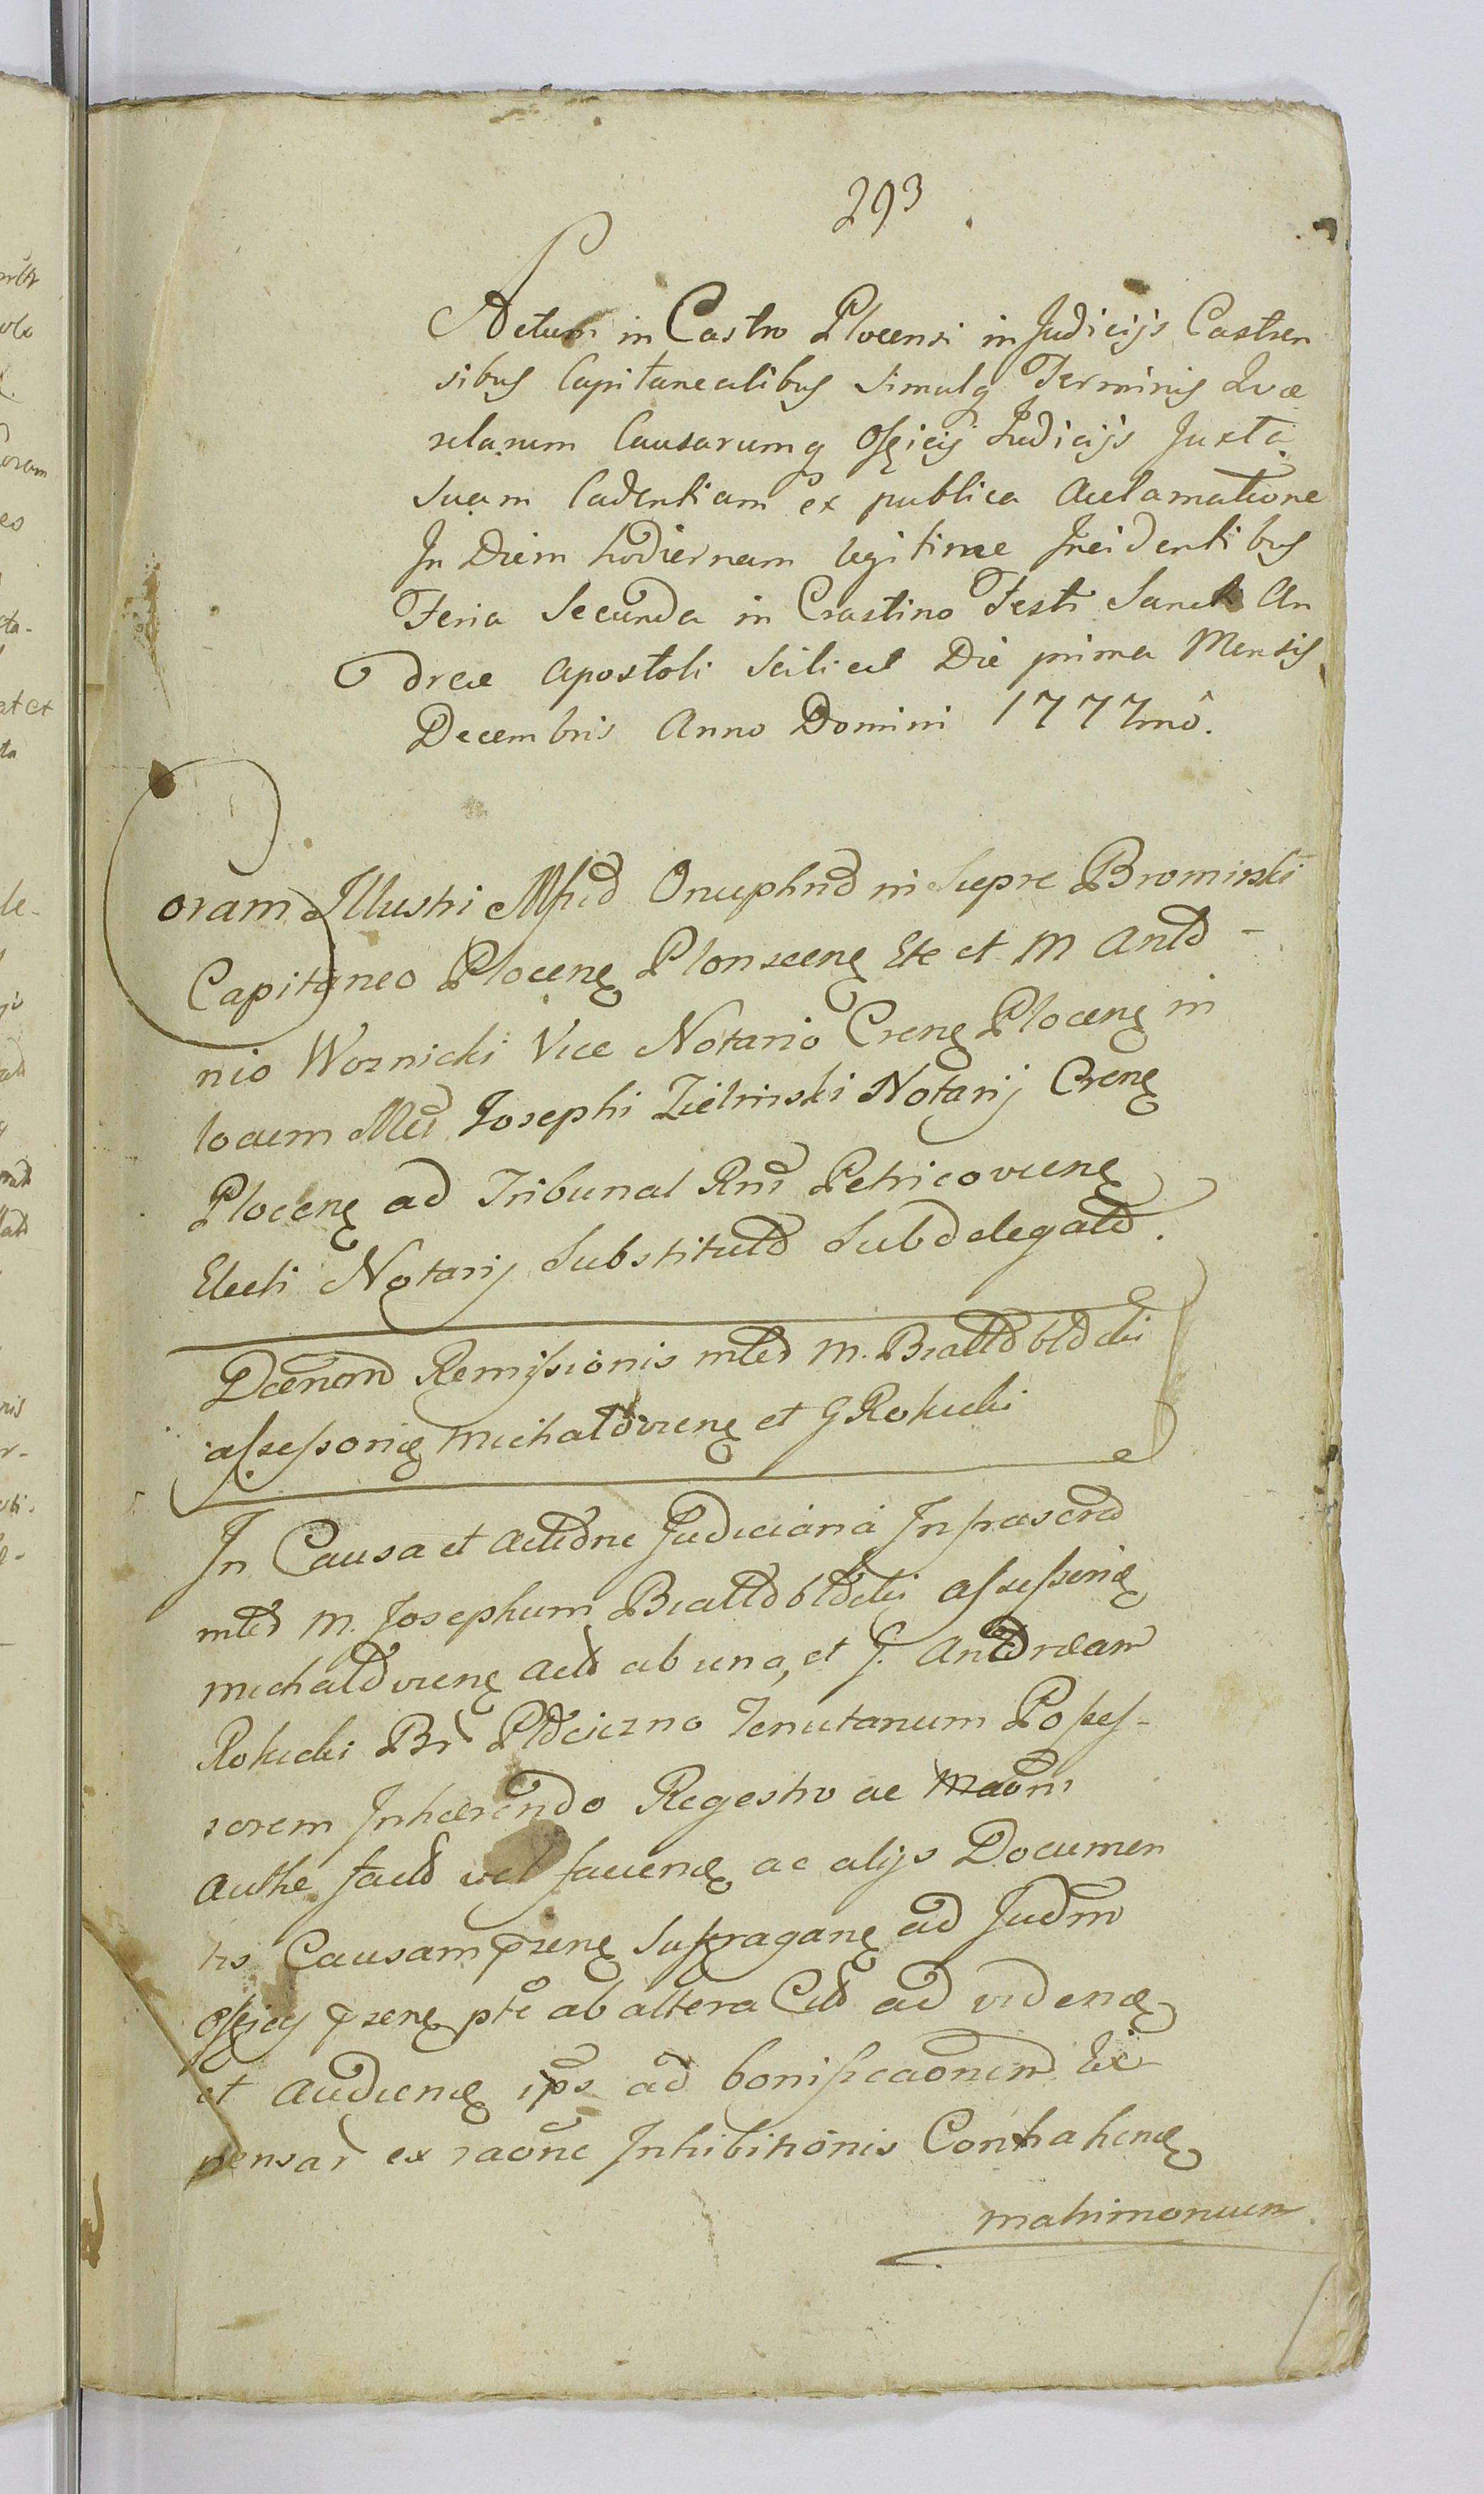 293
Actum in Castro Plocensi in Judicijs Castren
sibus Capitanealibus Simulq Terminis Qvæ
relarum Causarumq Officij Judicijs Juxta
Suam Cadentiam ex publica Acclamatione
In Diem hodiernam legitime Incidentibus
Feria Secunda in Crastino Festi Sancti An
dreæ Apostoli Scilicet Die prima Mensis
Decembris Anno Domini 1777mô.
Coram Illustri Mfico Onuphrio in Siepre Bromirski
Capitaneo Plocen Plonscen Etc et M Anto-
nio Woznicki Vice Notario Cren Plocen in
locum Mci Josephi Zielinski Notarij Cren
Plocen ad Tribunal Rni Petricovien
Electi Notarij Substituto Subdelegato.
Remissionis inter M. Bialoblocki
assessorem Michaloвien et G Rokicki
In Causa et Actione Judiciaria
inter M. Josephum Bialoblocki assessorem
Michalovien Act ab una, et G. Andream
Rokicki Br Tenutarium Posses-
sorem Inhærendo Regestro ac
Authe facto vel faciend ac alijs Documen
tis Causam pzen Suffragan ad Judm
Officij pzen pte ab altera Cit ad viden
et Audiend ipś ad bonificaonem Ex
pensar ex raone Inhibitionis Contrahend
matrimonium